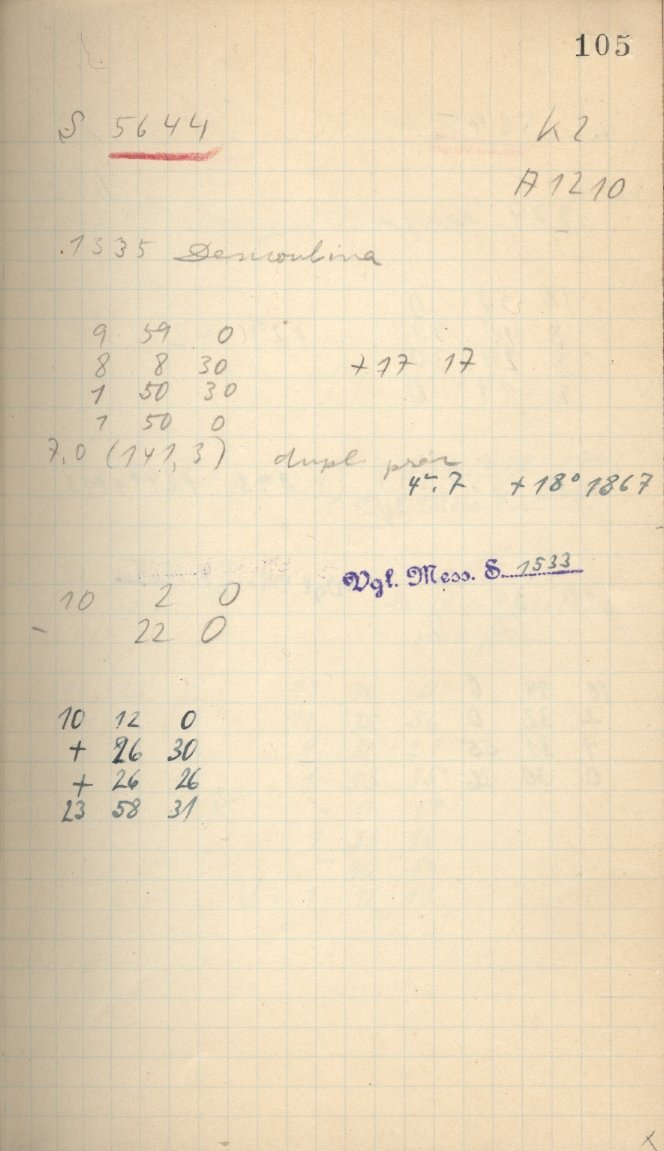 105
S 5644 K 2
A 1210
1335 Demoulina
9 59 0
8 8 30 +17 17
1 50 30
1 50 0
7,0 (141,3) dupl prär
4m.7 +18° 1867
Vgl. Mess. S. 1533
10 2 0
- 22 0
10 12 0
+ 26 30
+ 26 26
23 58 31